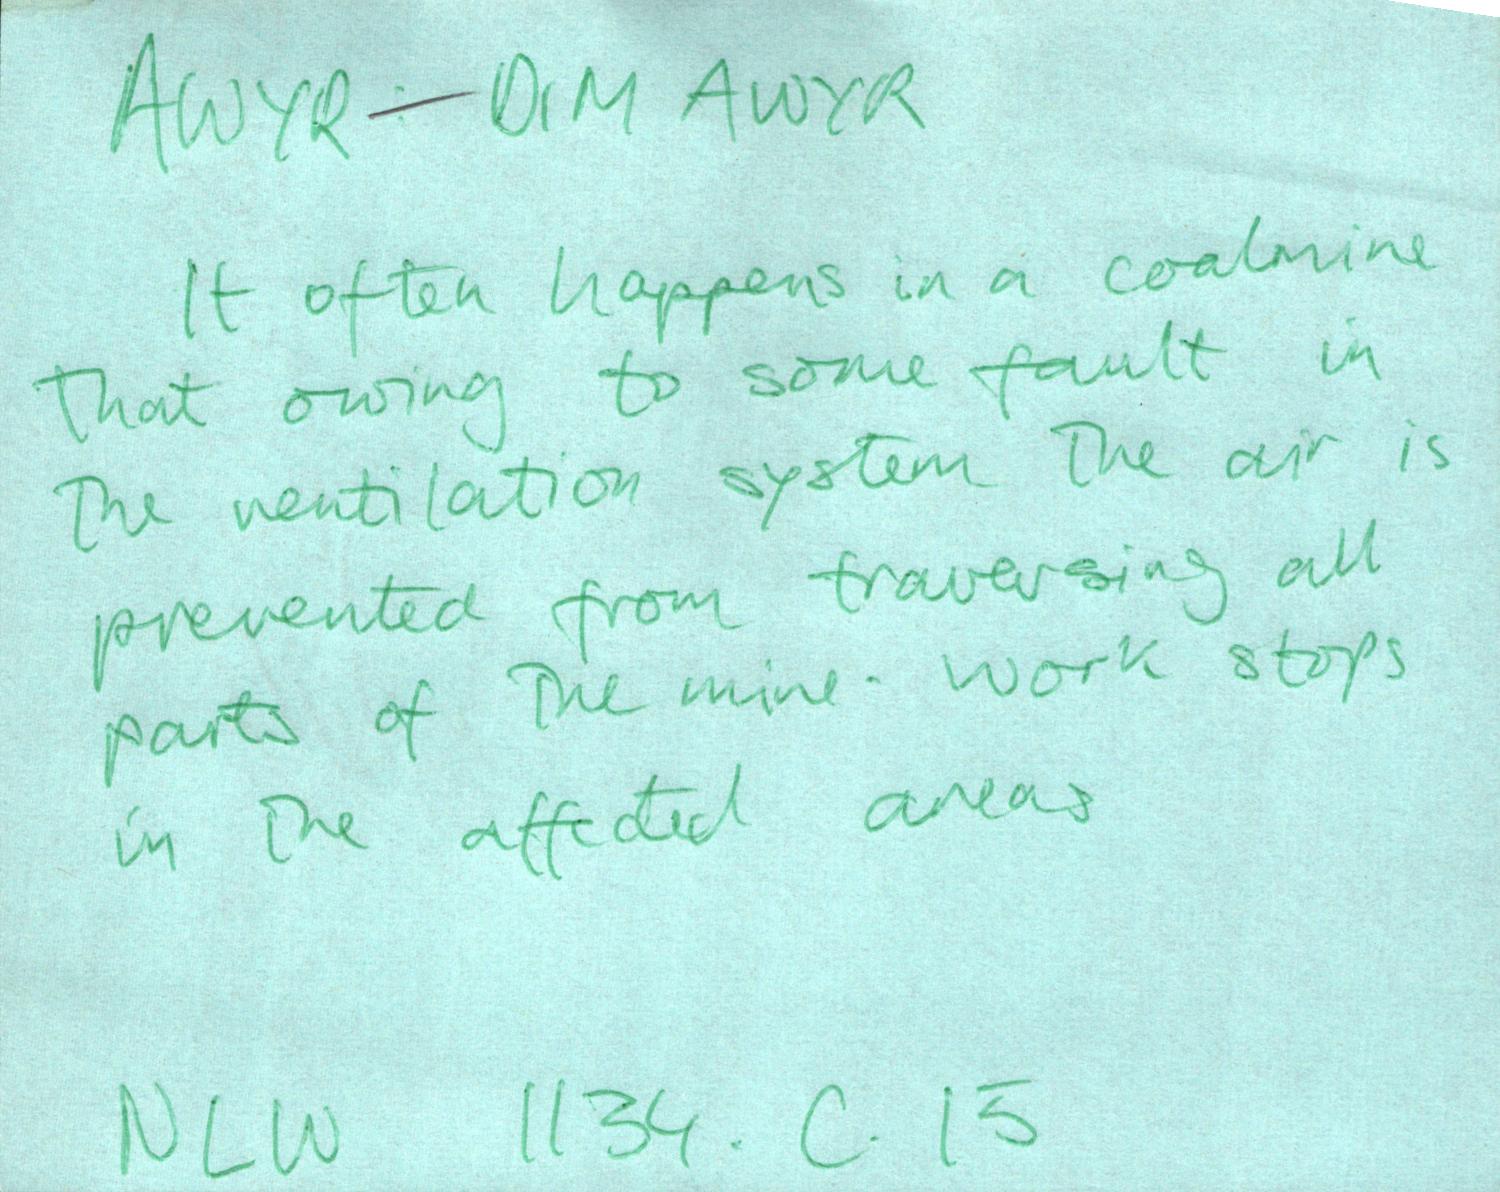 AWYR — DIM AWYR
It often happens in a coalmine
that owing to some fault in
the ventilation system the air is
prevented from traversing all
parts of the mine. Work stops
in the affected areas
NLW 1134. C. 15